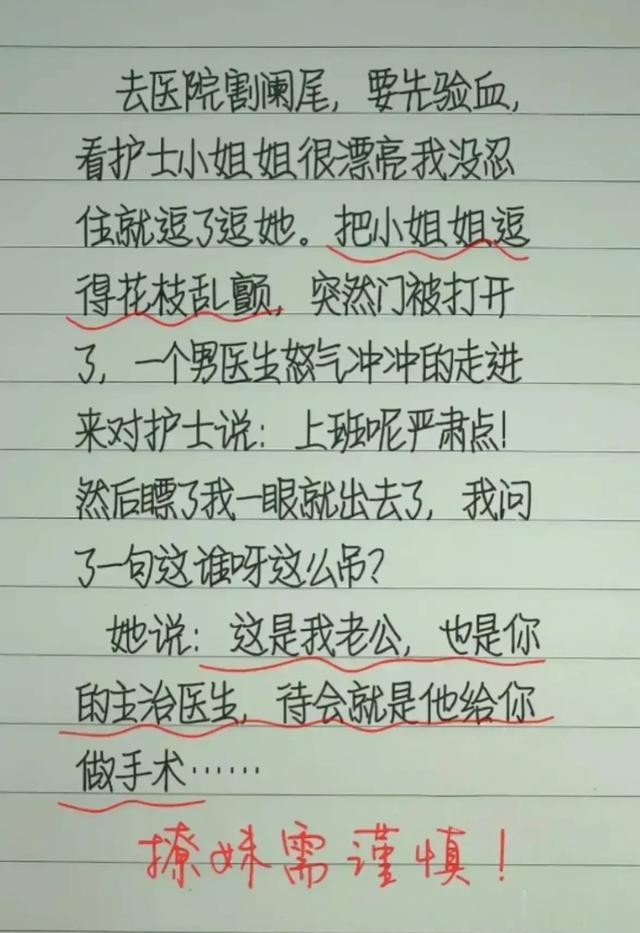 去医院割阑尾，要先验血，
看护士小姐姐很漂亮我没忍
住就逗了逗她。把小姐姐逗
得花枝乱颤，突然门被打开
了，一个男医生怒气冲冲的走进
来对护士说：上班呢严肃点！
然后瞟了我一眼就出去了，我问
了一句这谁呀这么吊？
她说：这是我老公，也是你
的主治医生，待会就是他给你
做手术……
撩妹需谨慎！